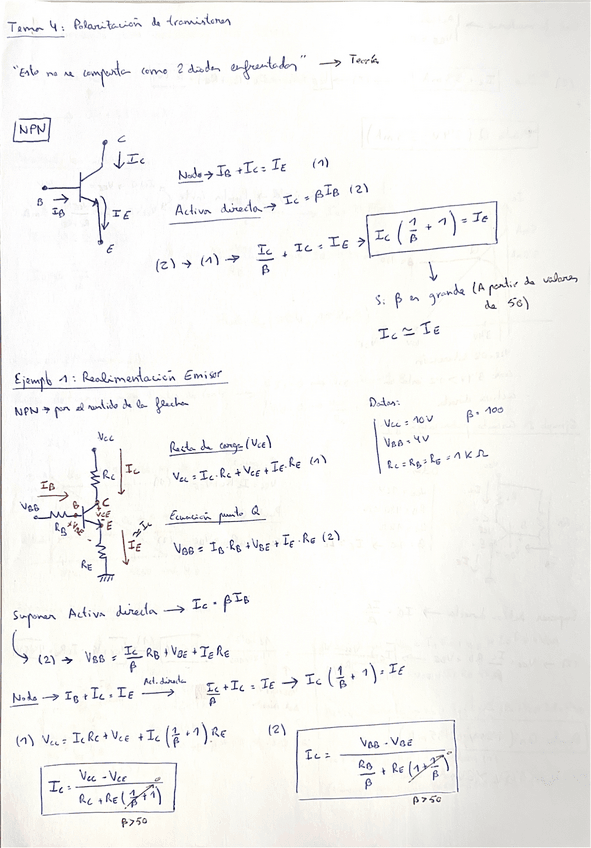 Tema 4: Polarización de transistores
"Esto no se comporta como 2 diodos enfrentados" → Teoría
NPN
C
↓ I_C
B
→ I_B
↓ I_E
E
Nodo → I_B + I_C = I_E (1)
Activa directa → I_C = βI_B (2)
(2) → (1) → I_C/β + I_C = I_E → I_C (1/β + 1) = I_E
↓
Si β es grande (A partir de valores
de 50)
I_C ≃ I_E
Ejemplo 1: Realimentación Emisor
NPN → por el sentido de la flecha
Datos:
V_CC = 10V β = 100
V_BB = 4V
R_C = R_B = R_E = 1KΩ
V_CC
R_C
I_C
I_B
V_BB
R_B
B
C
V_CE
E
I_E ≃ I_C
R_E
Recta de carga (V_CE)
V_CC = I_C·R_C + V_CE + I_E·R_E (1)
Ecuación punto Q
V_BB = I_B·R_B + V_BE + I_E·R_E (2)
Suponer Activa directa → I_C = βI_B
(2) → V_BB = I_C/β R_B + V_BE + I_E R_E
Nodo → I_B + I_C = I_E → Act. directa I_C/β + I_C = I_E → I_C (1/β + 1) = I_E
(1) V_CC = I_C R_C + V_CE + I_C (1/β + 1)·R_E
(2) I_C = (V_BB - V_BE) / (R_B/β + R_E (1 + 1/β)) 0
β>50
I_C = (V_CC - V_CE) / (R_C + R_E (1/β + 1)) 0
β>50